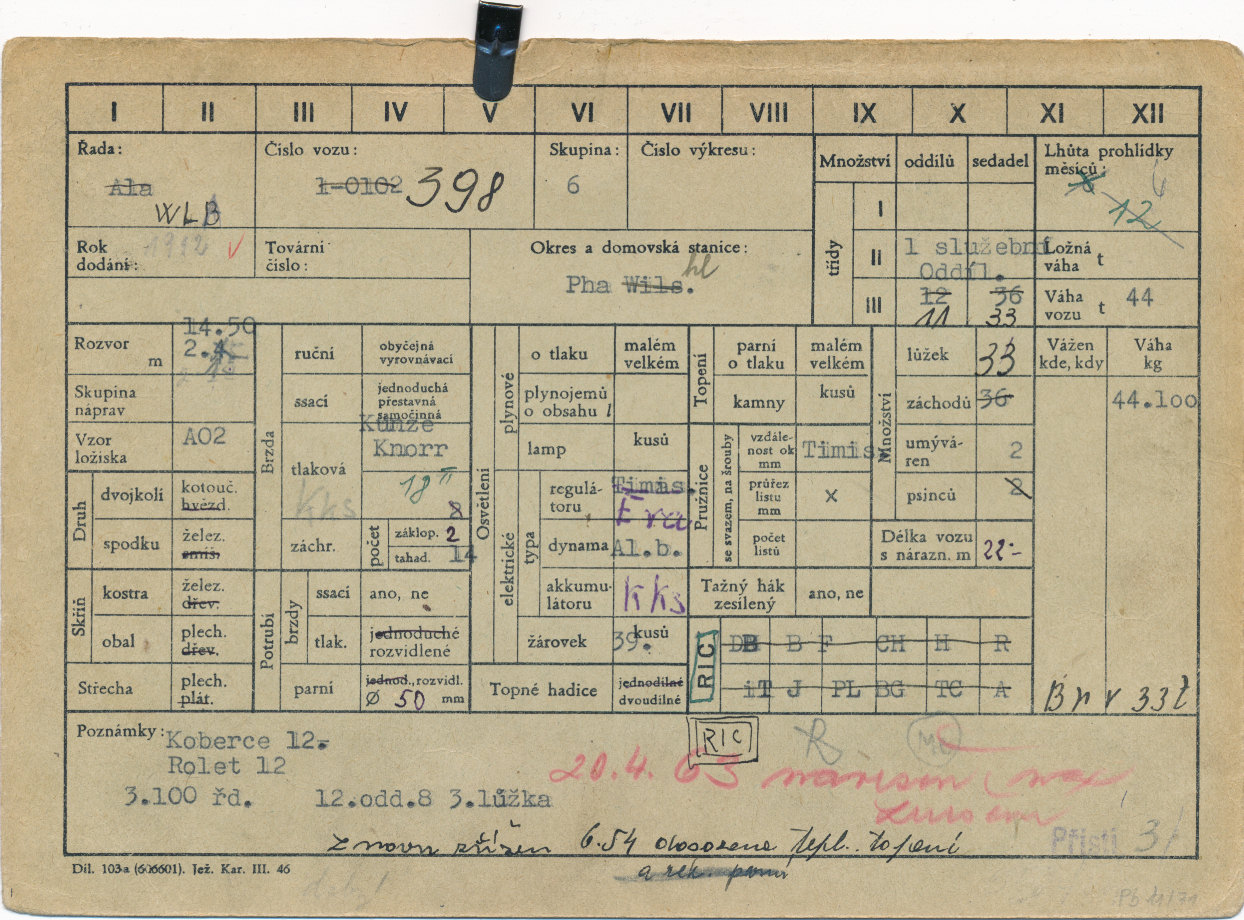 I II III IV V VI VII VIII IX X XI XII
Řada:
Ala
WLB
Číslo vozu:
1-0102 398
Skupina:
6
Číslo výkresu:
Množství oddílů sedadel
třídy
I
II 1 služební
Oddíl.
III 12 36
11 33
Lhůta prohlídky
měsíců:
12
Ložná
váha t
Váha
vozu t 44
Rok
dodání: 1912
Tovární
číslo:
Okres a domovská stanice:
hl
Pha Wils.
Rozvor
m
14.50
Skupina
náprav
Vzor
ložiska
AO2
Druh
dvojkolí
kotouč.
hvězd.
spodku
želez.
smíš.
Skříň
kostra
želez.
dřev.
obal
plech.
dřev.
Střecha
plech.
plát.
Brzda
ruční
obyčejná
vyrovnávací
ssací
jednoduchá
přestavná
samočinná
tlaková
Kunze
Knorr
Kks
záchr.
počet
záklop. 2
tahad. 14
Potrubí
brzdy
ssací
ano, ne
tlak.
jednoduché
rozvidlené
parní
jednod., rozvidl.
Ø 50 mm
Osvětlení
plynové
o tlaku
malém
velkém
plynojemů
o obsahu l
lamp
kusů
elektrické
typa
regulá-
toru
Timis.
Eva
dynama
Al.b.
akkumu-
látoru
KKs
žárovek
39. kusů
Topné hadice
jednodílné
dvoudílné
Topení
parní
o tlaku
malém
velkém
kamny
kusů
Pružnice
se svazem, na šrouby
vzdále-
nost ok
mm
Timis.
průřez
listu
mm
x
počet
listů
Tažný hák
zesílený
ano, ne
Množství
lůžek 33
záchodů 36
umývá-
ren 2
psinců 2
Délka vozu
s nárazn. m 22·-
Vážen
kde, kdy
Váha
kg
44.100
RIC
DB B F CH H R
iT J PL BG TC A
Br v 33t
Poznámky:
Koberce 12.
Rolet 12
3.100 řd. 12.odd.8 3.lůžka
RIC
R.
20.4.63
Příští 3/
znovu zřízen 6.54 dosazena tepl. topení
Díl. 103a (606601). Jež. Kar. III. 46